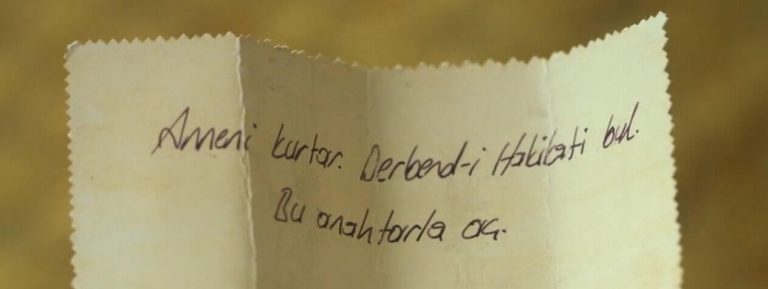 Ameni kurtar. Derbend-i Hakikati bul.
Bu anahtarla aç.